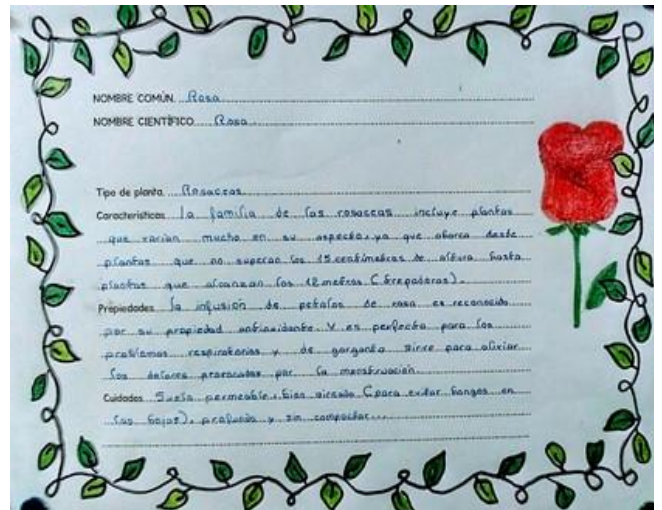 NOMBRE COMÚN Rosa
NOMBRE CIENTÍFICO Rosa
Tipo de planta Rosaceas
Características La familia de las rosaceas incluye plantas
que varian mucho en su aspecto, ya que abarca desde
plantas que no superan los 15 centímetros de altura hasta
plantas que alcanzan los 12 metros (trepadoras).
Propiedades la infusión de petalos de rosa es reconocido
por su propiedad antioxidante y es perfecta para los
problemas respiratorios y de garganta sirve para aliviar
los dolores provocados por la menstruación
Cuidados Suelo permeable, bien aireado (para evitar hongos en
las hojas), profundo y sin compactar...